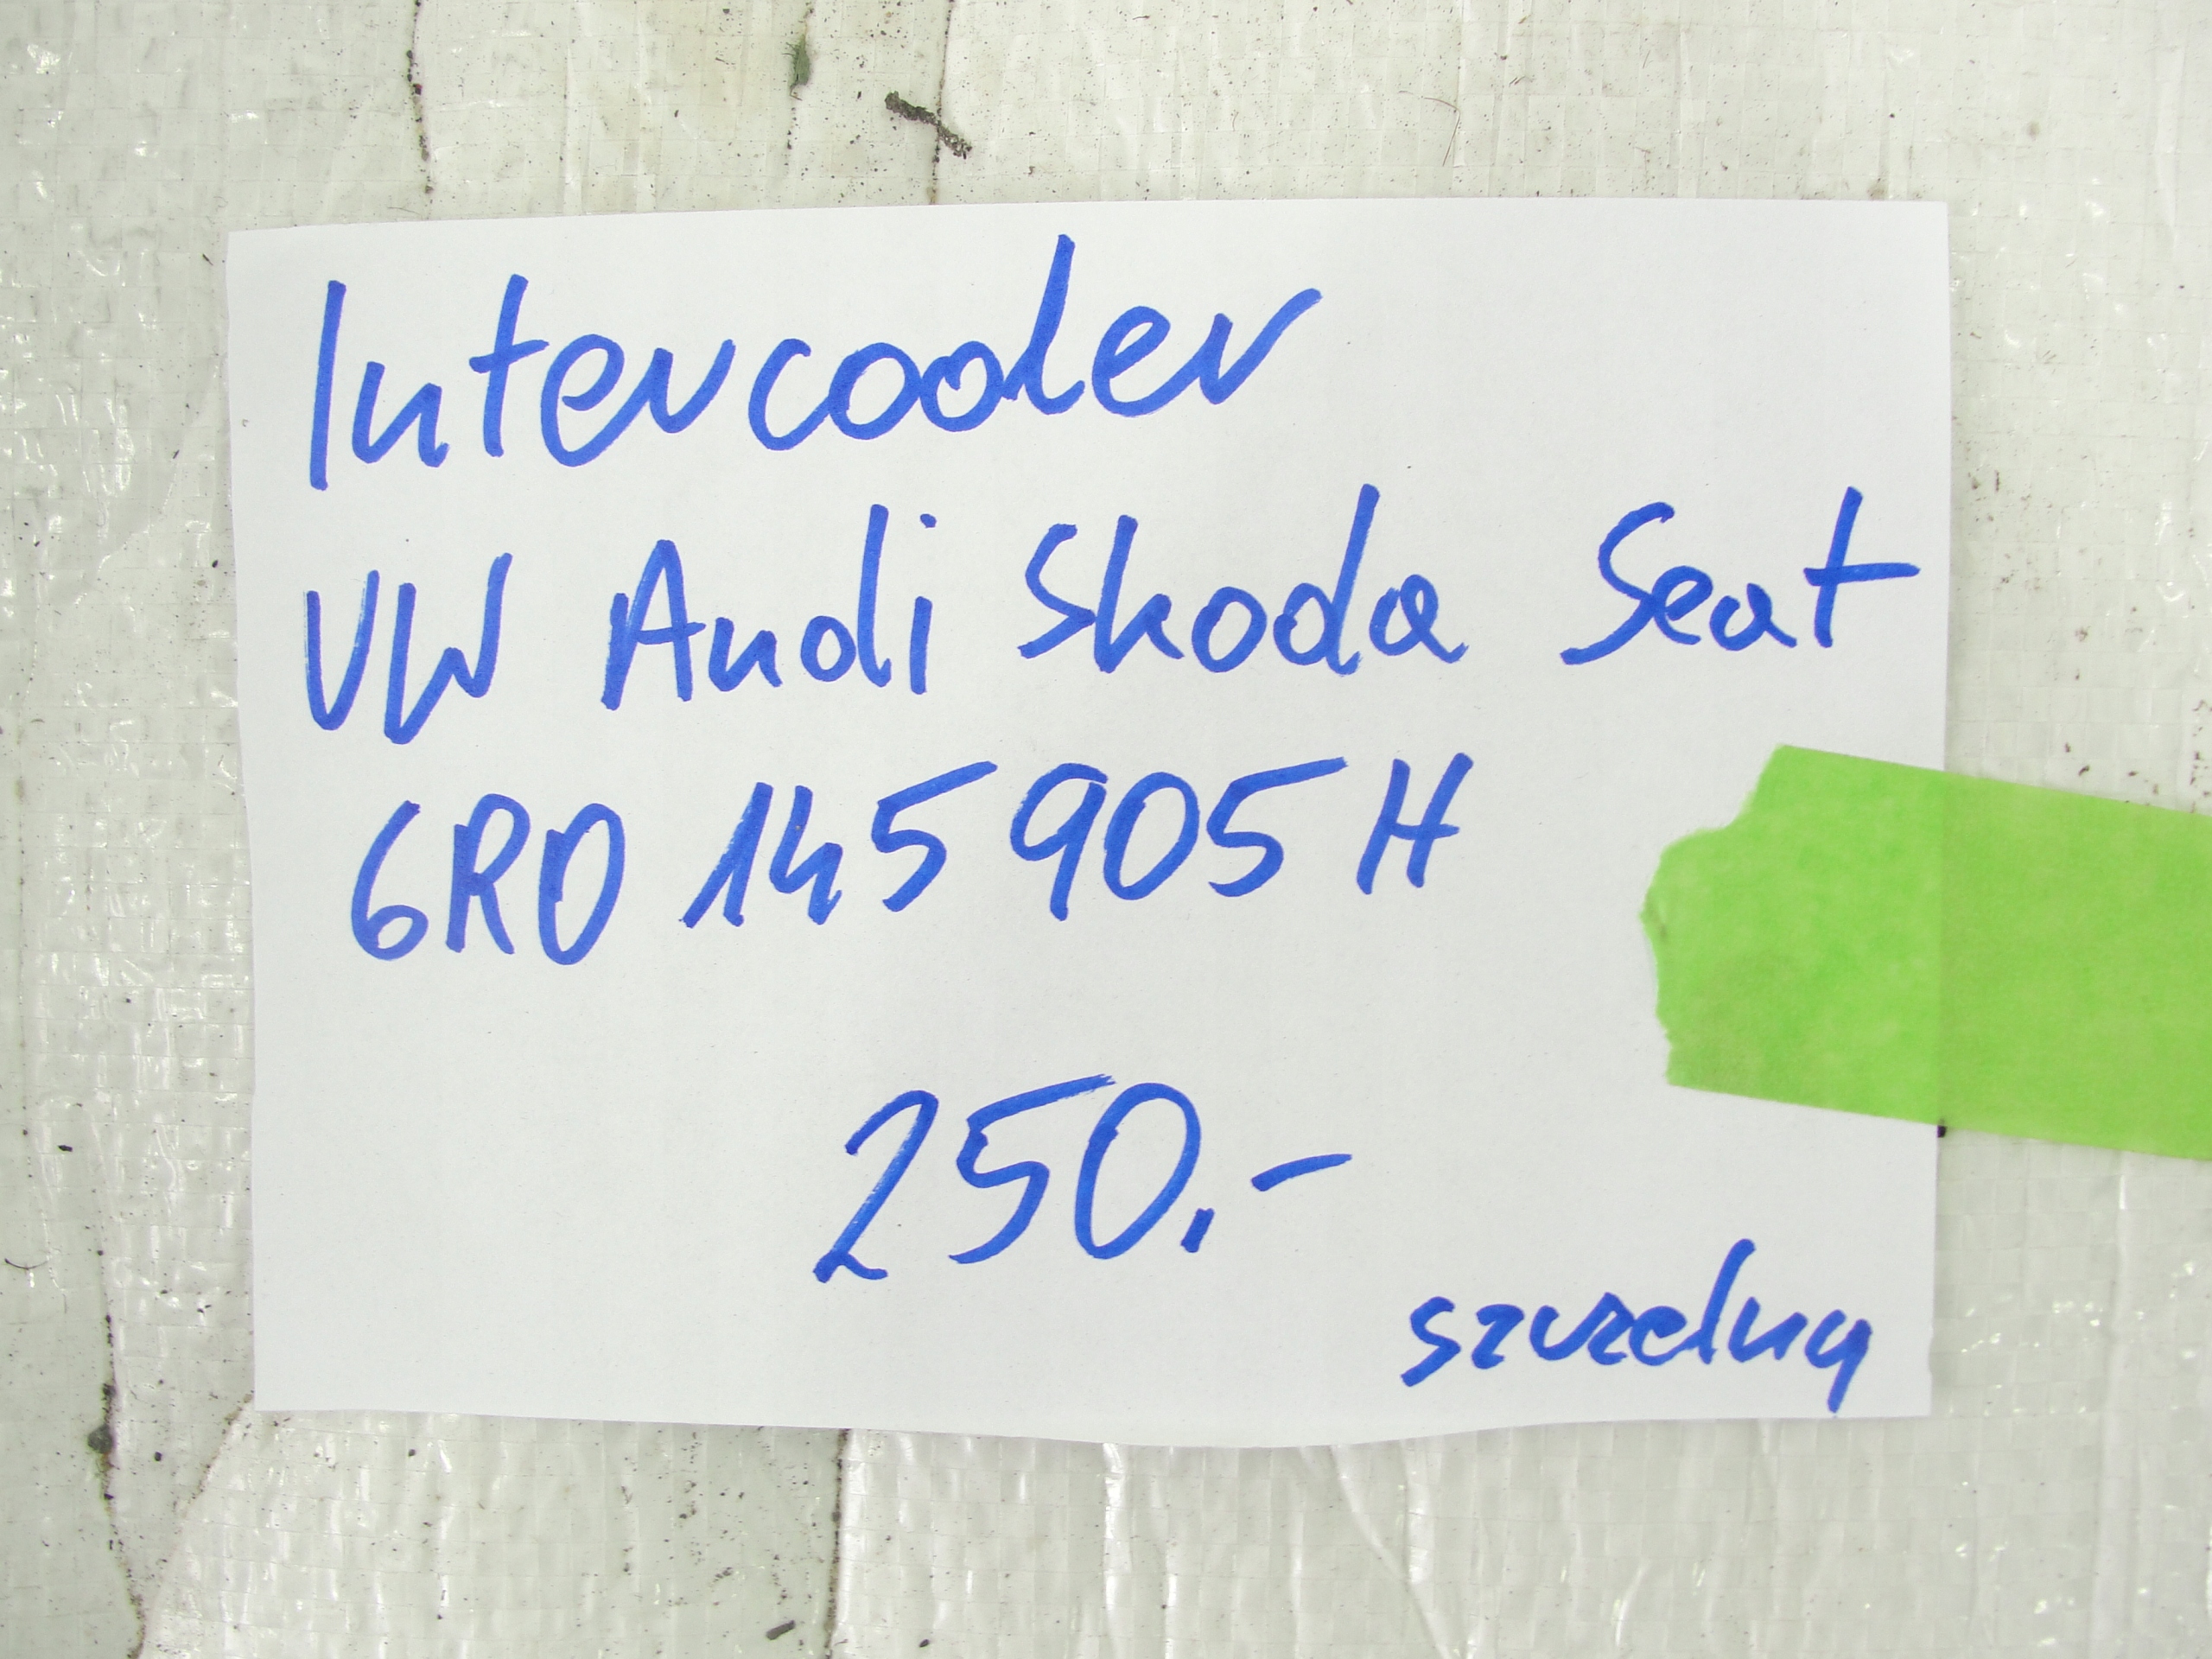 Intercooler
VW Audi Skoda Seat
6R0 145 905 H
250.-
szczelny